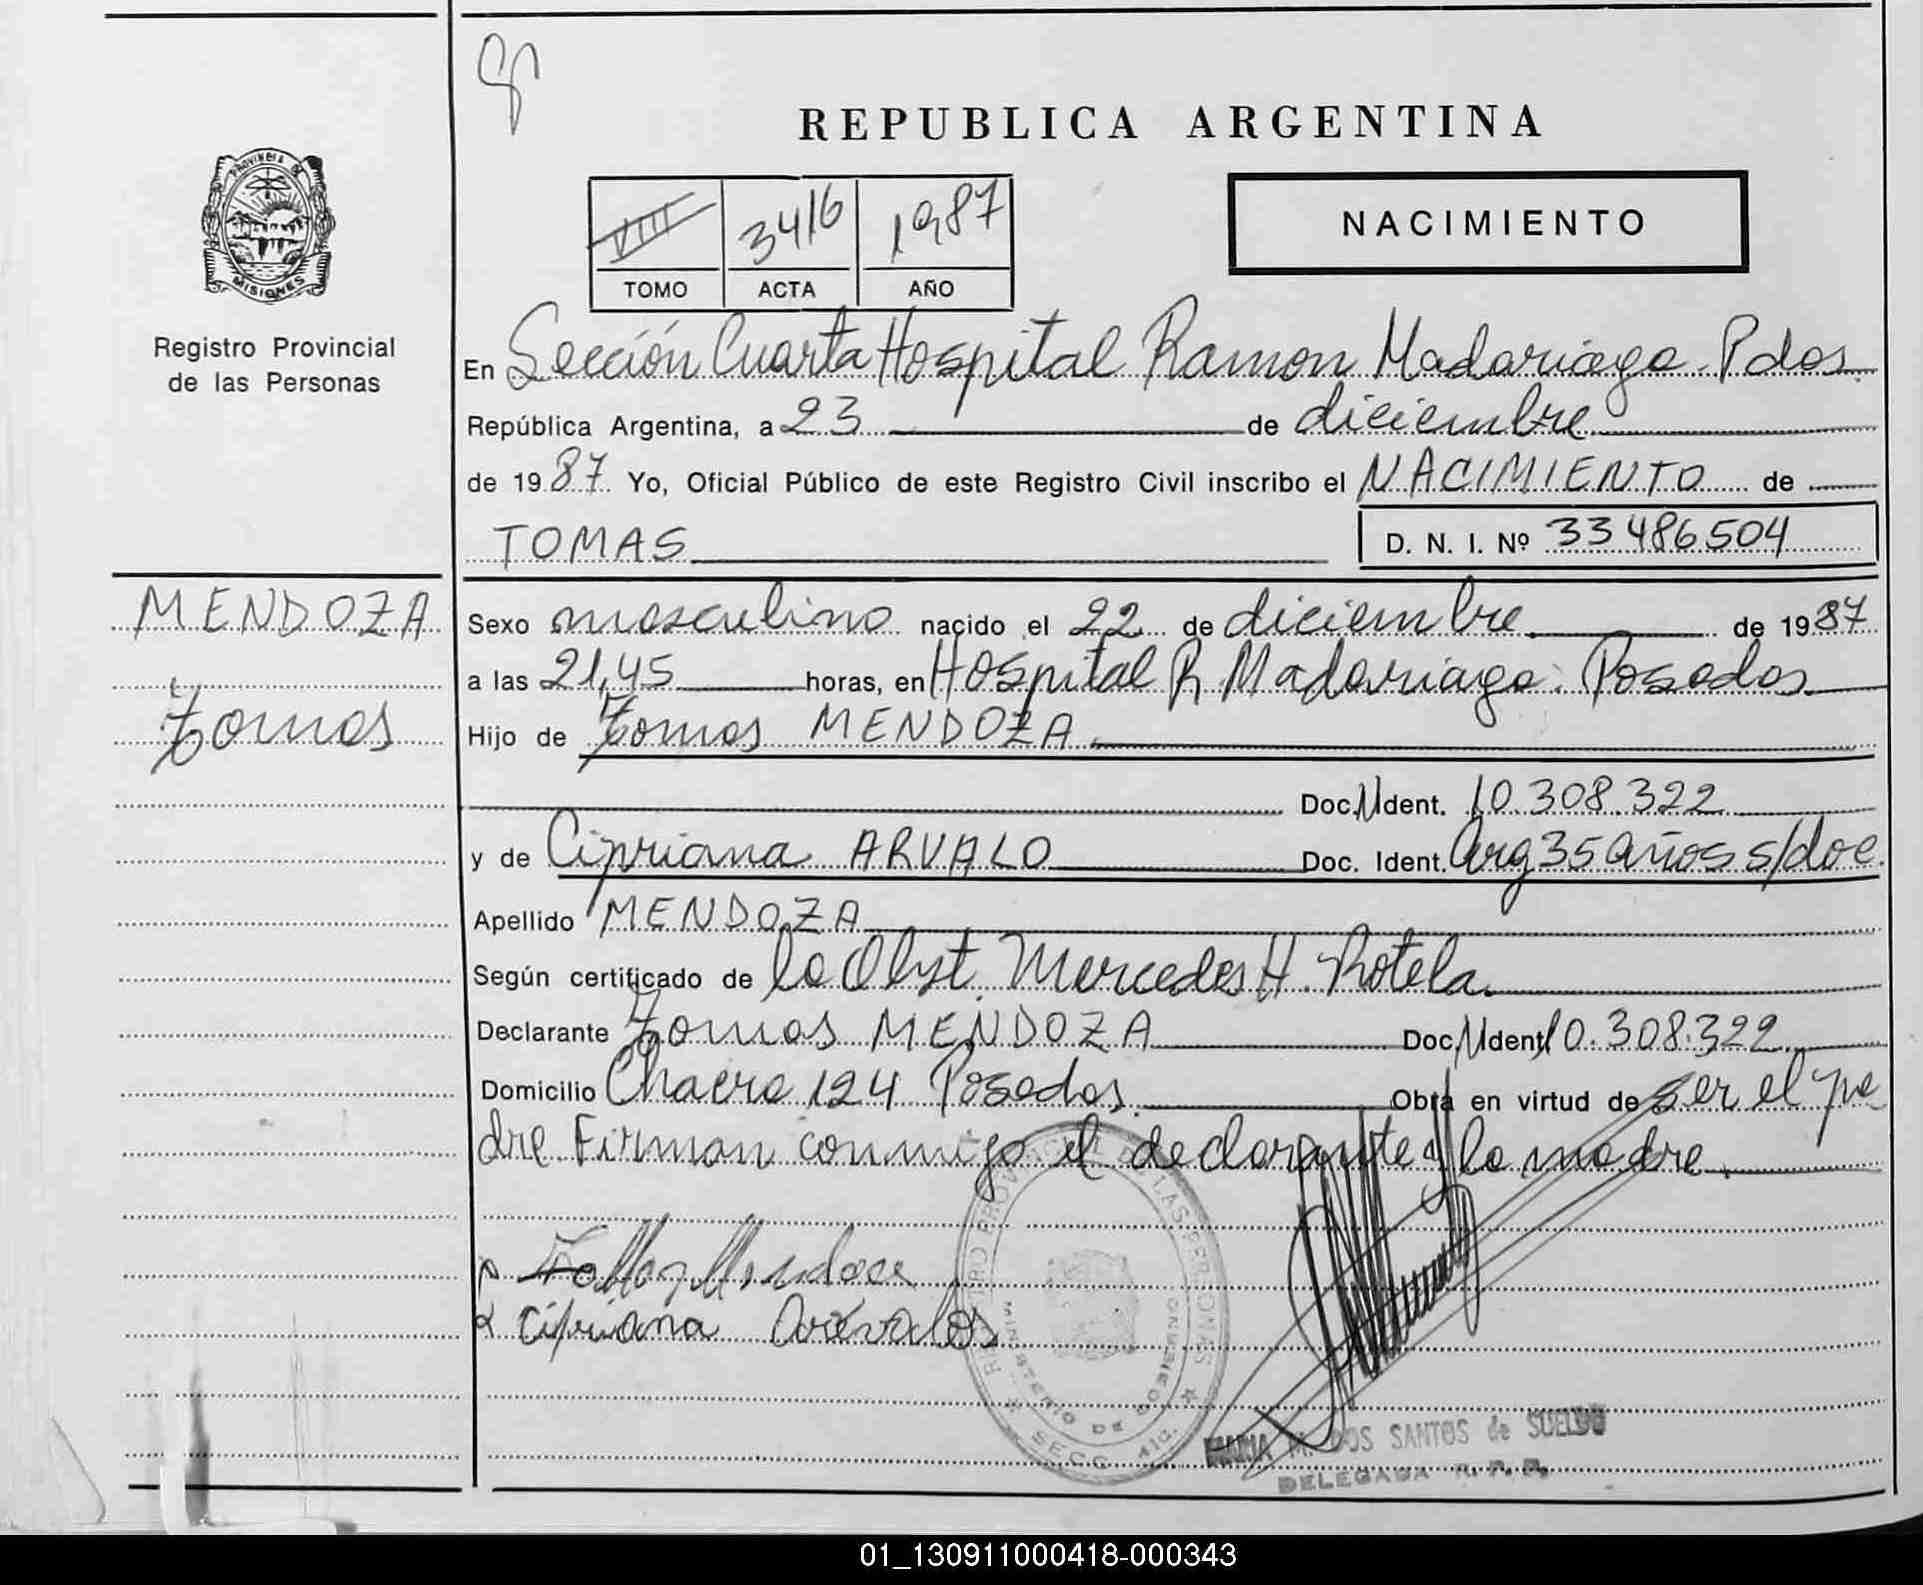 REPUBLICA ARGENTINA
PROVINCIA DE
MISIONES
Registro Provincial
de las Personas
VIII 3416 1987
TOMO ACTA AÑO
NACIMIENTO
En Sección Cuarta Hospital Ramon Madariaga. Pdas.
República Argentina, a 23 de diciembre
de 1987. Yo, Oficial Público de este Registro Civil inscribo el NACIMIENTO de
TOMAS
D. N. I. Nº 33486504
MENDOZA
Tomas
Sexo masculino nacido el 22 de diciembre de 1987
a las 21,45 horas, en Hospital R. Madariaga. Posadas
Hijo de Tomas MENDOZA
Doc. Ident. 10.308.322
y de Cipriana ARVALO Doc. Ident. Arg 35 años s/doc.
Apellido MENDOZA
Según certificado de la Obst. Mercedes H. Rotela.
Declarante Tomas MENDOZA Doc. Ident. 10.308.322
Domicilio Chacra 124 Posadas. Obra en virtud de ser el pa
dre. Firman conmigo el declarante y la madre.
Mendoza
Cipriana Arévalos
REGISTRO PROVINCIAL DE LAS PERSONAS
MINISTERIO DE GOBIERNO
SECC. 4ta.
MARIA M. DOS SANTOS de SUELDO
DELEGADA R. P. P.
01_130911000418-000343